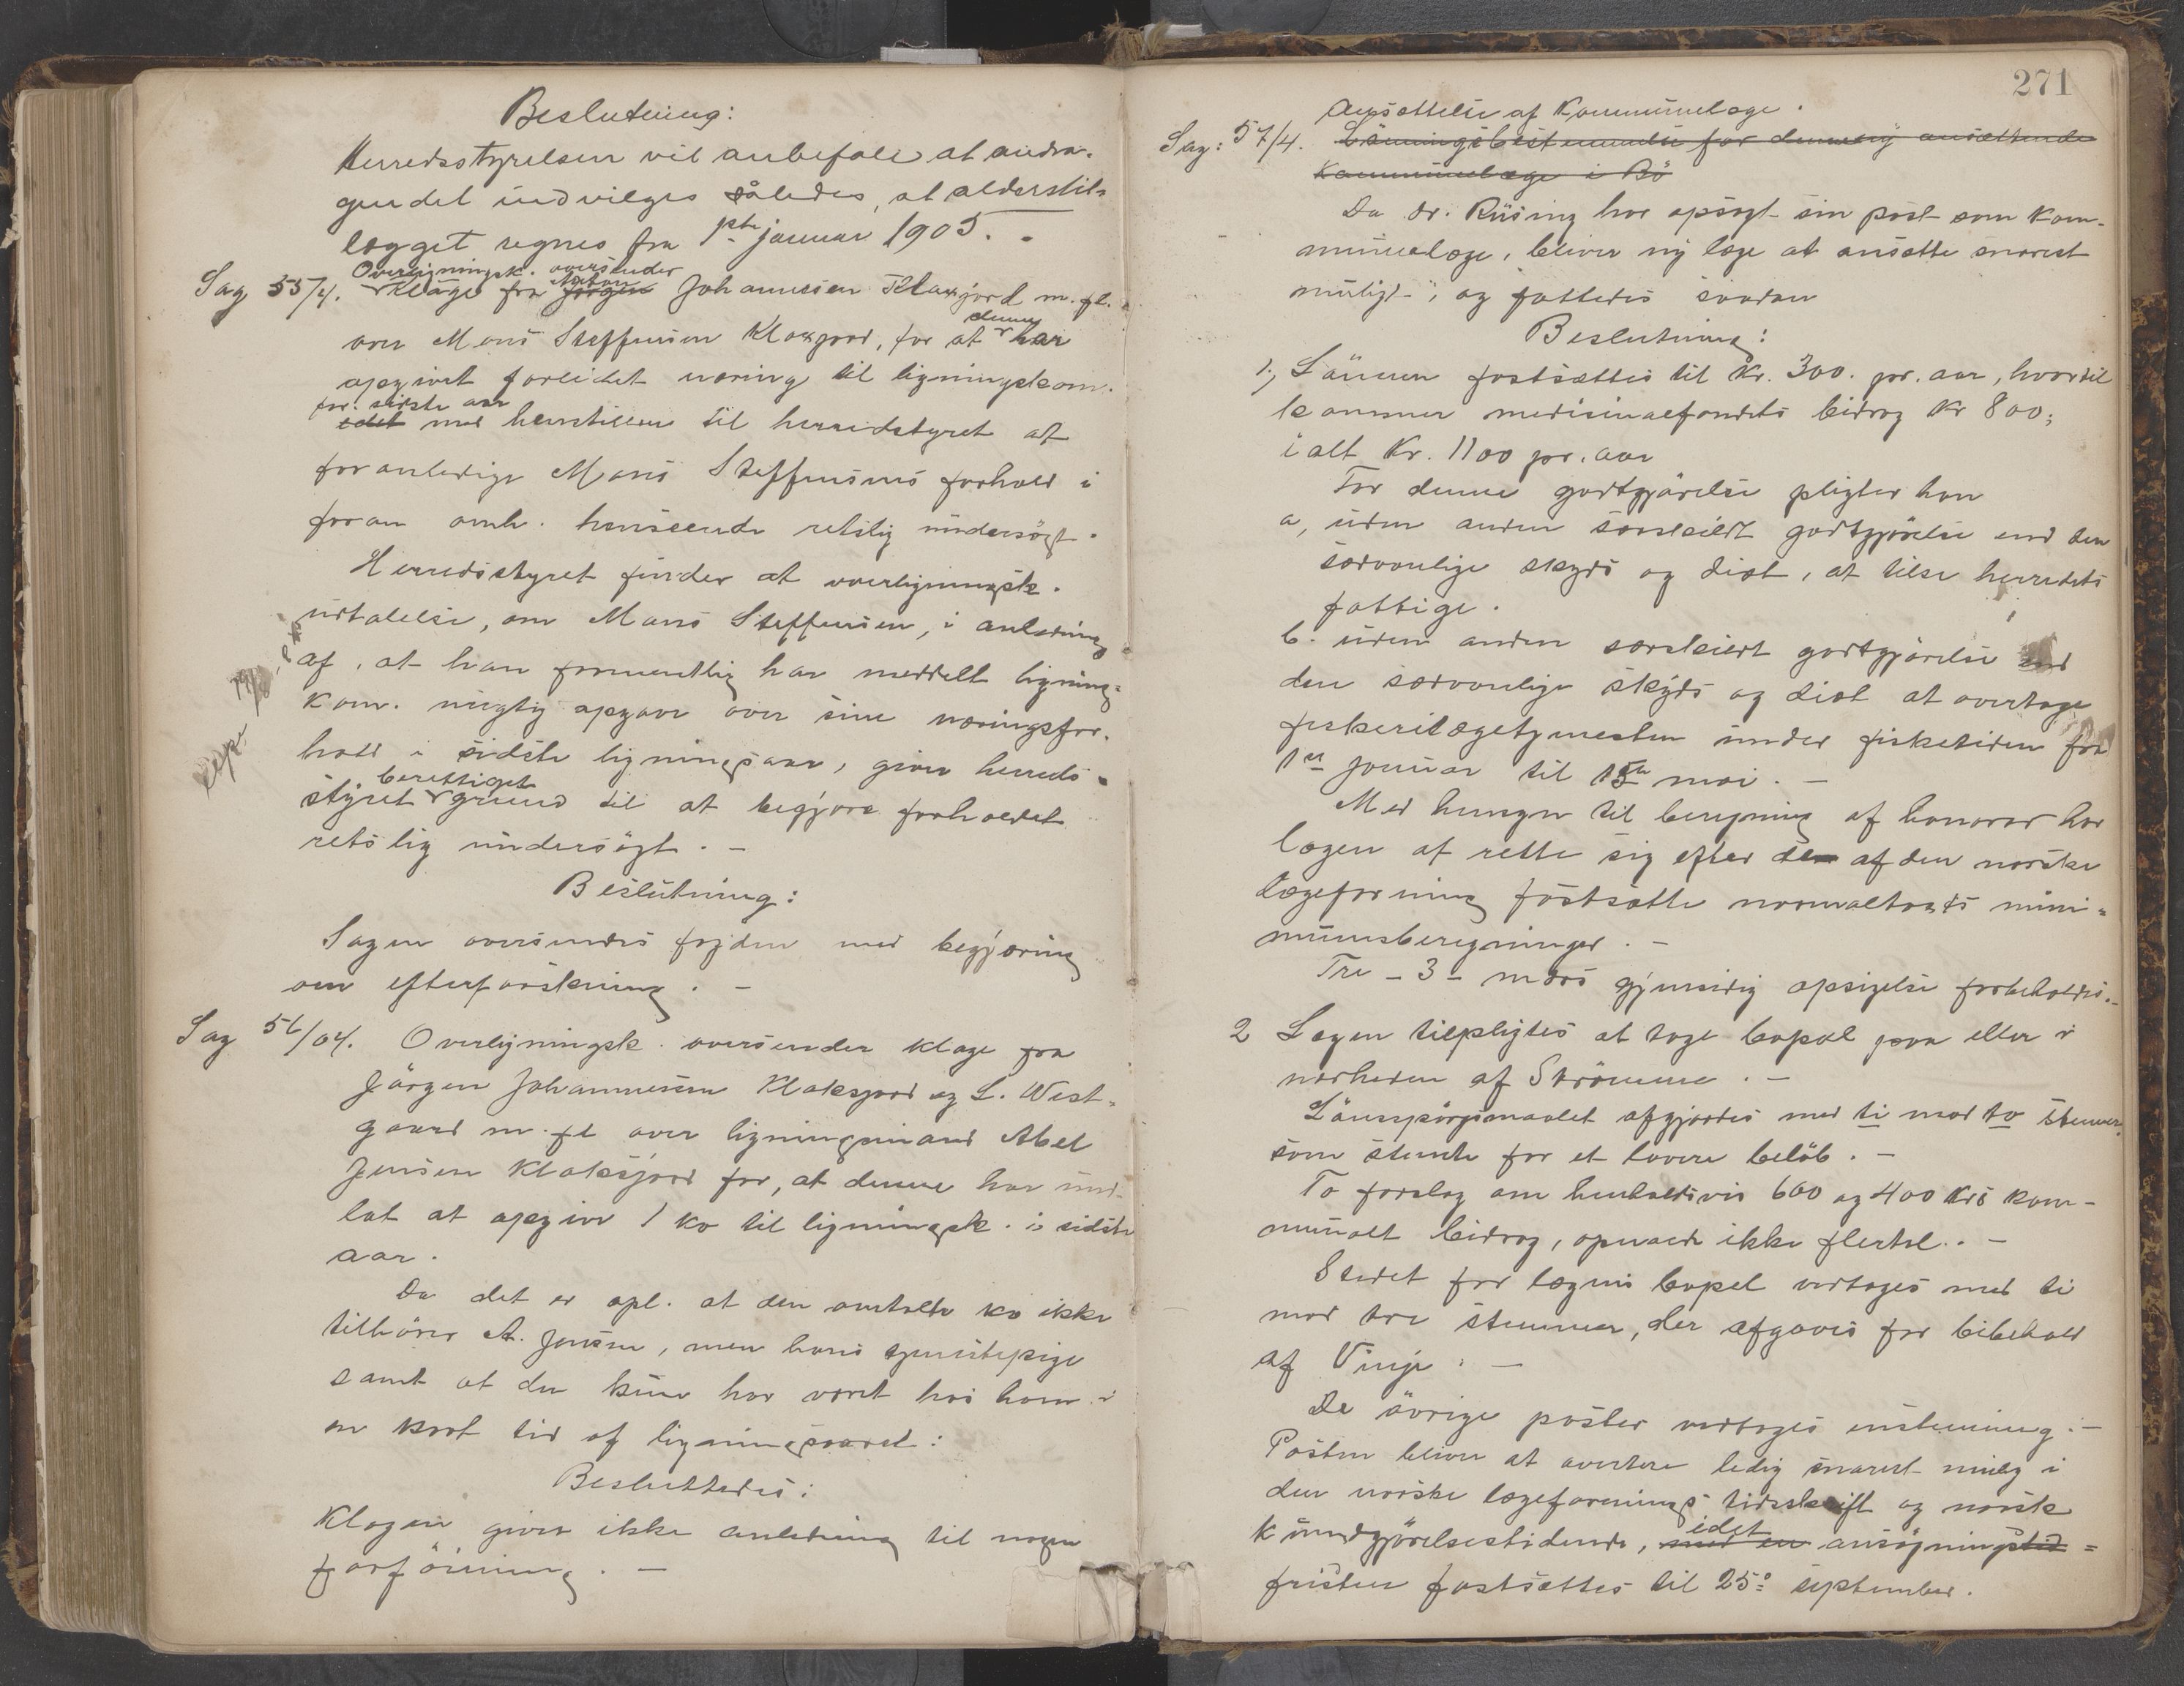 Beslutning:
Herredsstyrelsen vil anbefale at andra-
gendet indvilges således, at alderstil-
lægget regnes fra 1ste januar 1905. -
Overligningsk. oversender
Sag 55/4. klage fra Jörgen Anton Johannesen Klaxjord m. fl.
over Mons Steffensen Klaxjord, for at denne har
opgivet forlidet næring til ligningskom.
for. sidste aar
idet med henstillen til herredstyret at
foranledige Mons Steffensens forhold i
foran omh. henseende retslig undersögt.
Herredsstyret finder at overligningsk.
udtalelse, om Mons Steffensen, i anledning
af, at han formentlig har meddelt ligning-
kom. urigtig opgave over sine næringsfor-
hold i sidste ligningsaar, giver herreds-
styret berettiget grund til at begjære forholdet
retslig undersögt. -
Beslutning:
Sagen oversendes fogden med begjæring
om efterforskning. -
Sag 56/04. Overligningsk. oversender klage fra
Jörgen Johannesen Klaksjord og L. West-
gaard m. fl over ligningsmand Abel
Jensen Klaksjord for, at denne har und-
lat at opgive 1 ko til ligningsk. i sidste
aar.
Da det er opl. at den omtalte ko ikke
tilhörer A. Jensen, men hans tjenestepige
samt at den kun har været hos ham i
en kort tid af ligningsaaret:
Besluttedes:
Klagen giver ikke anledning til nogen
forföining. -
271
Ansættelse af Kommunelæge.
Sag: 57/4. Lönningsbestemmelse for den nÿ ansættende
Kommunelæge i Bö
Da dr. Rüsing har opsagt sin post som kom-
munelæge, bliver ny læge at ansætte snarest
muligt, og fattedes saadan
Beslutning:
1, Lönnen fastsættes til Kr. 300. pr. aar, hvortil
kommer medisinalfondets bidrag Kr 800;
ialt Kr. 1100 pr. aar
For denne godtgjörelse pligter han
a, uden anden særskildt godtgjörelse end den
sædvanlige skyds og diæt, at tilse herredets
fattige.
b. uden anden særskildt godtgjörelse end
den sædvanlige skyds og diæt at overtage
fiskerilægetjenesten under fisketiden fra
1ste januar til 15de mai. -
Med hensyn til beregning af honorar har
lægen at rette sig efter den af den norske
lægeforening fastsatte normaltaxts mini-
mumsberegninger. -
Tre - 3 - mdrs gjensidig opsigelse forbeholdes. -
2 Lægen tilpligtes at tage bopæl paa eller i
nærheden af Strömme. -
Lönspörgsmaalet afgjordes med ti mod to stemmer
som stemte for et lavere belöb. -
To forslag om henholdsvis 600 og 400 Krs kom-
munalt bidrag, opnaade ikke flertal. -
Stedet for lægens bopæl vedtoges med ti
mod tre stemmer, der afgaves for bibehold
af Vinje. -
De övrige poster vedtoges enstemmig. -
Posten bliver at avertere ledig snarest mulig i
den norske lægeforenings tidsskrift og norsk
kundgjörelsestidende, med en idet ansögningstid-
fristen fastsættes til 25de september.